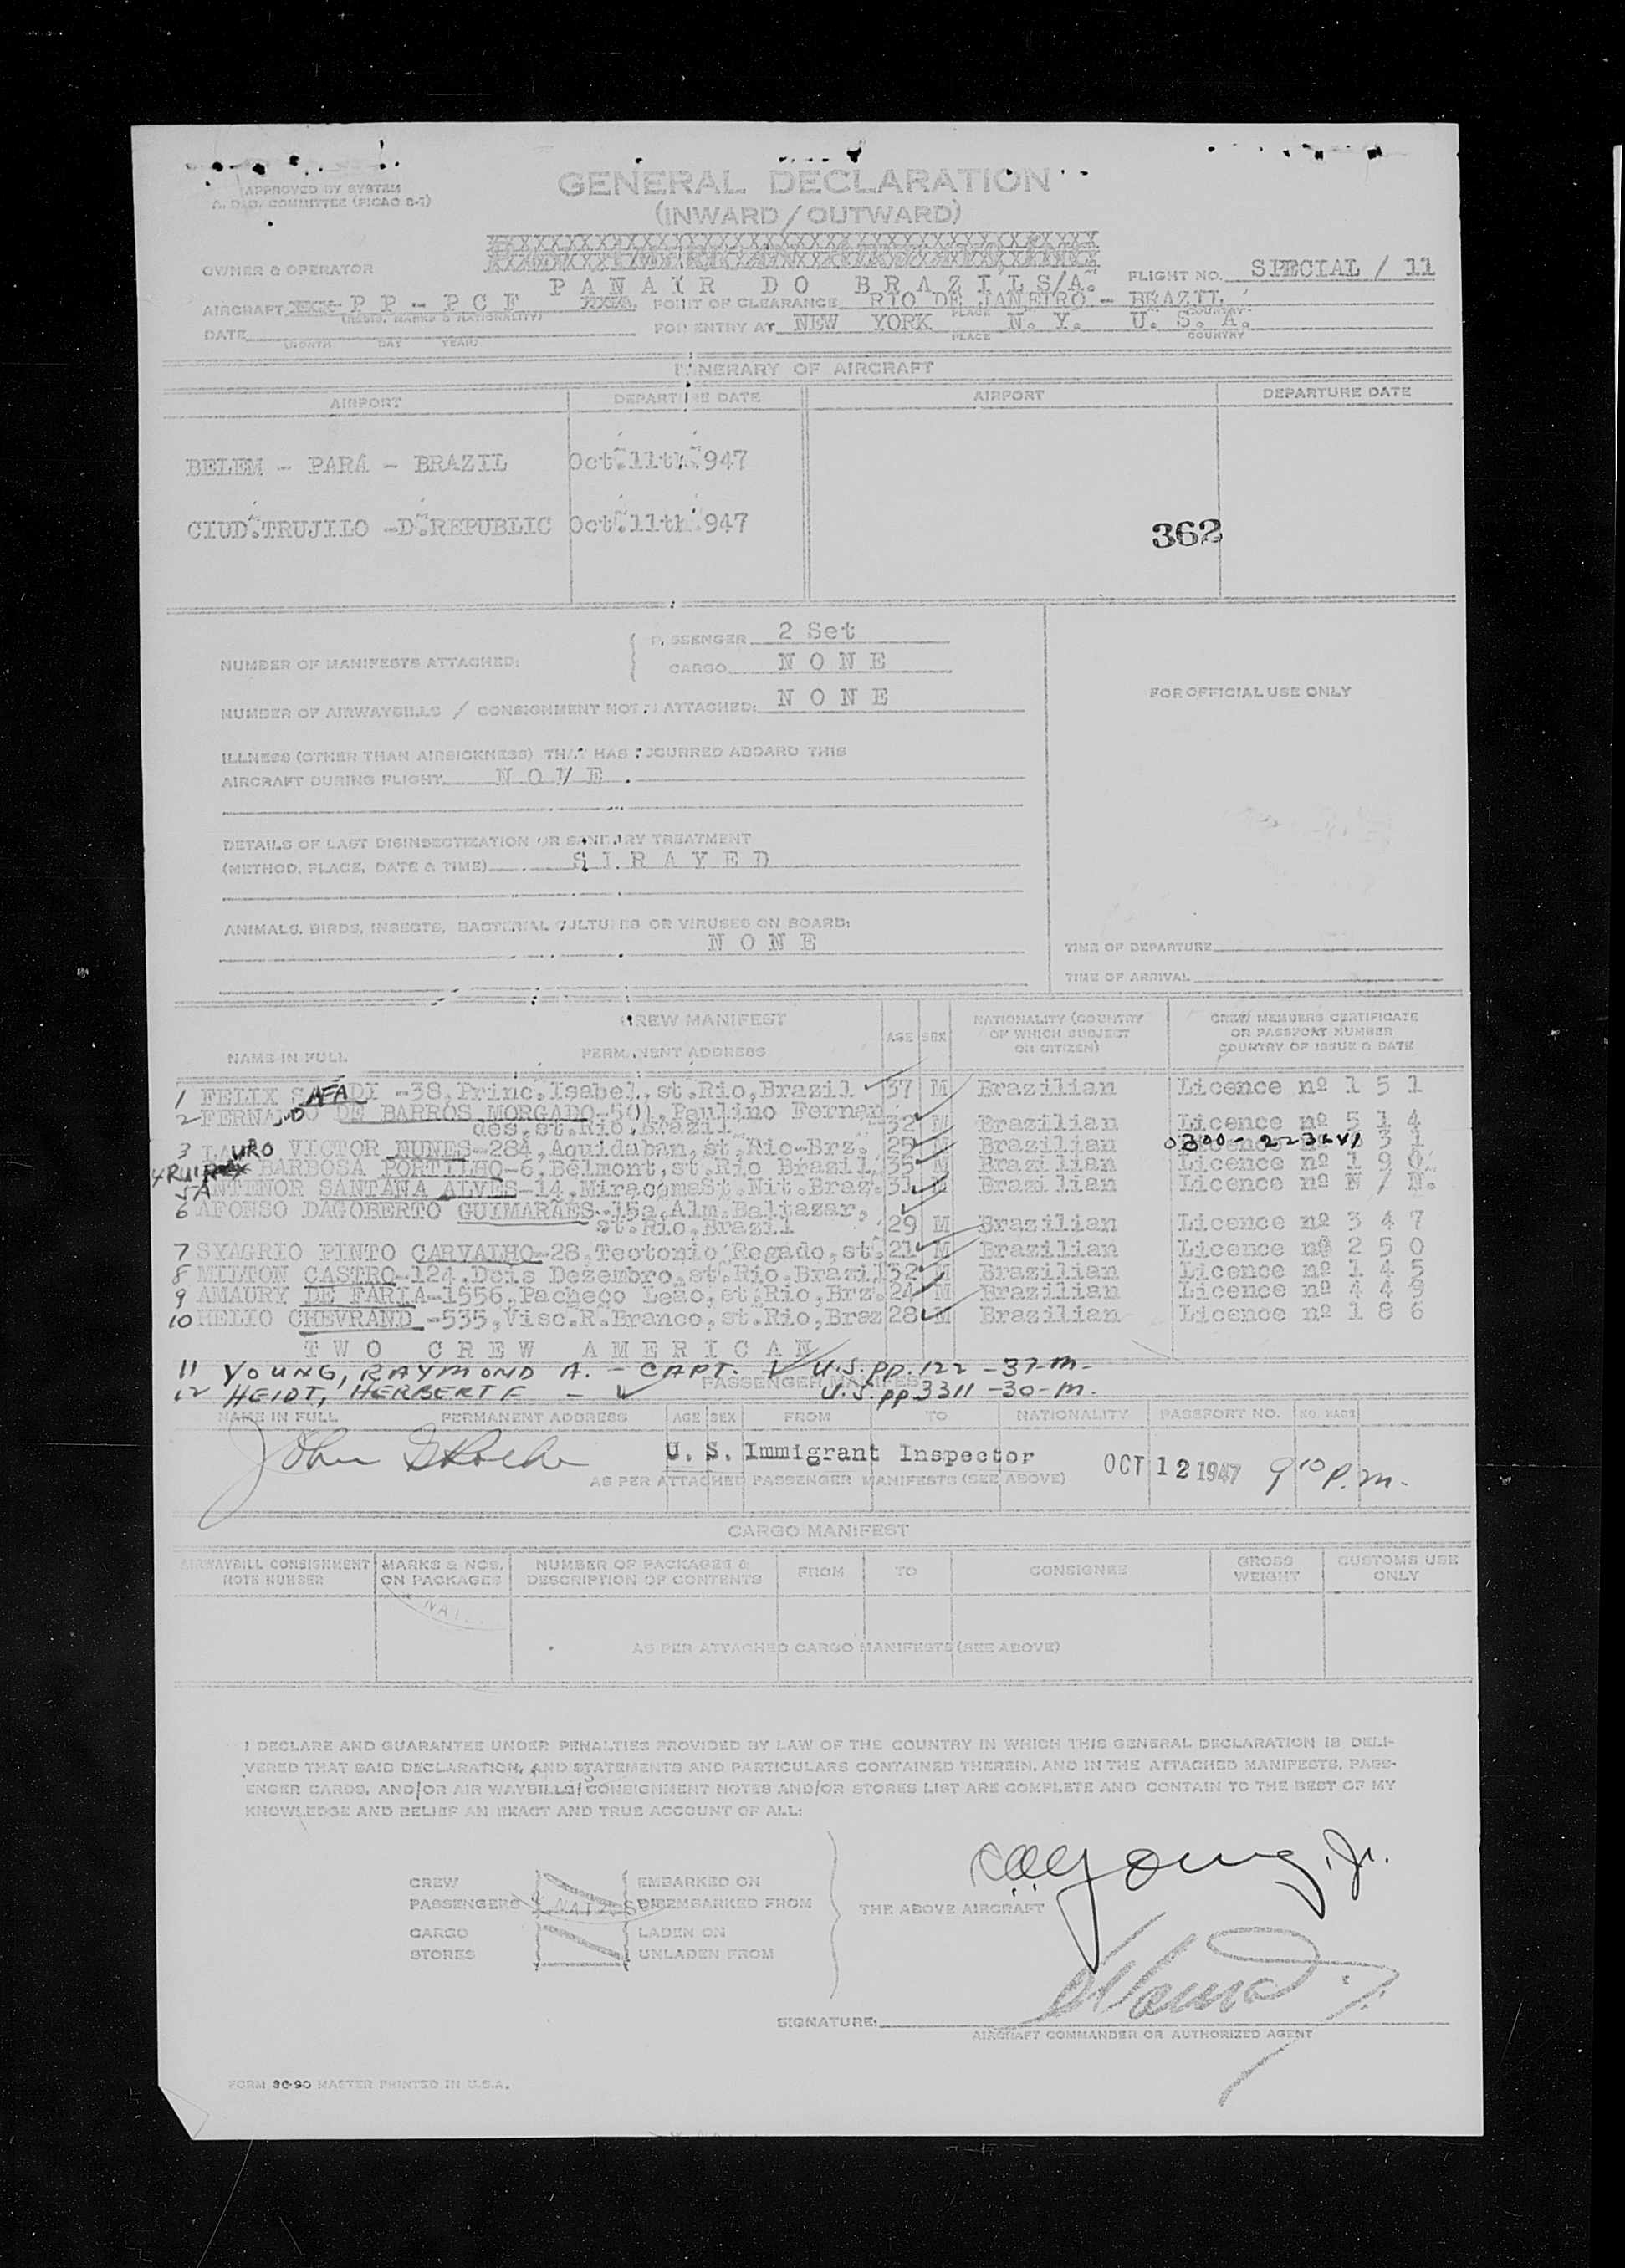 APPROVED BY SYSTEM
A. D&D. COMMITTEE (PICAO S-1)
GENERAL DECLARATION
(INWARD / OUTWARD)
OWNER & OPERATOR
PANAIR DO BRAZIL S/A.
FLIGHT NO. SPECIAL / 11
AIRCRAFT PP-PCF POINT OF CLEARANCE RIO DE JANEIRO - BRAZIL
(REGIS. MARKS & NATIONALITY) PLACE COUNTRY
DATE FOR ENTRY AT NEW YORK N. Y. U. S. A.
(MONTH DAY YEAR) PLACE COUNTRY
ITINERARY OF AIRCRAFT
AIRPORT DEPARTURE DATE AIRPORT DEPARTURE DATE
BELEM - PARÁ - BRAZIL Oct.11th.947
CIUD.TRUJILO -D.REPUBLIC Oct.11th.947
362
NUMBER OF MANIFESTS ATTACHED: PASSENGER 2 Set
CARGO N O N E
NUMBER OF AIRWAYBILLS / CONSIGNMENT NOTES ATTACHED: N O N E
FOR OFFICIAL USE ONLY
ILLNESS (OTHER THAN AIRSICKNESS) THAT HAS OCCURRED ABOARD THIS
AIRCRAFT DURING FLIGHT N O N E .
DETAILS OF LAST DISINSECTIZATION OR SANITARY TREATMENT
(METHOD, PLACE, DATE & TIME) S P R A Y E D
ANIMALS, BIRDS, INSECTS, BACTERIAL CULTURES OR VIRUSES ON BOARD:
N O N E
TIME OF DEPARTURE
TIME OF ARRIVAL
CREW MANIFEST
NAME IN FULL PERMANENT ADDRESS AGE SEX NATIONALITY (COUNTRY OF WHICH SUBJECT OR CITIZEN) CREW MEMBERS CERTIFICATE OR PASSPORT NUMBER COUNTRY OF ISSUE & DATE
1 FELIX SAFADI -38,Princ.Isabel,st.Rio,Brazil 37 M Brazilian Licence nº 1 5 1
2 FERNANDO DE BARROS MORGADO-501,Paulino Fernan
des,st.Rio.Brazil 32 M Brazilian Licence nº 5 1 4
3 LAURO VICTOR NUNES-284,Aquidaban,st.Rio-Brz. 29 M Brazilian
4 RUI BARBOSA PORTILHO-6.Belmont,st.Rio Brasil 35 M Brazilian Licence nº 1 9 0
5 ANTENOR SANTANA ALVES-14.MiracemaSt.Nit.Braz. 31 M Brazilian Licence nº N / N.
6 AFONSO DAGOBERTO GUIMARÃES-15a,Alm.Baltazar,
st.Rio,Brazil 29 M Brazilian Licence nº 3 4 7
7 SYAGRIO PINTO CARVALHO-28.Teotonio Regado,st. 21 M Brazilian Licence nº 2 5 0
8 MILTON CASTRO-124.Dois Dezembro,st.Rio.Brazil 32 M Brazilian Licence nº 1 4 5
9 AMAURY DE FARIA-1556,Pacheco Leão,st.Rio,Brz. 24 M Brazilian Licence nº 4 4 9
10 HELIO CHEVRAND -535,Visc.R.Branco,st.Rio,Braz 28 M Brazilian Licence nº 1 8 6
T W O C R E W A M E R I C A N
11 YOUNG, RAYMOND A. - CAPT. U.S. pp. 122 - 37-m-
PASSENGER MANIFEST
12 HEIDT, HERBERT F - U.S. pp 3311 - 30 - m.
NAME IN FULL PERMANENT ADDRESS AGE SEX FROM TO NATIONALITY PASSPORT NO. NO. BAGS
U. S. Immigrant Inspector OCT 12 1947 9 10 P.m.
AS PER ATTACHED PASSENGER MANIFESTS (SEE ABOVE)
CARGO MANIFEST
AIRWAYBILL CONSIGNMENT NOTE NUMBER MARKS & NOS. ON PACKAGES NUMBER OF PACKAGES & DESCRIPTION OF CONTENTS FROM TO CONSIGNEE GROSS WEIGHT CUSTOMS USE ONLY
AS PER ATTACHED CARGO MANIFESTS (SEE ABOVE)
I DECLARE AND GUARANTEE UNDER PENALTIES PROVIDED BY LAW OF THE COUNTRY IN WHICH THIS GENERAL DECLARATION IS DELI-
VERED THAT SAID DECLARATION, AND STATEMENTS AND PARTICULARS CONTAINED THEREIN, AND IN THE ATTACHED MANIFESTS, PASS-
ENGER CARDS, AND/OR AIR WAYBILLS/CONSIGNMENT NOTES AND/OR STORES LIST ARE COMPLETE AND CONTAIN TO THE BEST OF MY
KNOWLEDGE AND BELIEF AN EXACT AND TRUE ACCOUNT OF ALL:
CREW EMBARKED ON
PASSENGERS DISEMBARKED FROM THE ABOVE AIRCRAFT
CARGO LADEN ON
STORES UNLADEN FROM
RAYoung, Jr.
SIGNATURE:
AIRCRAFT COMMANDER OR AUTHORIZED AGENT
FORM 30-90 MASTER PRINTED IN U.S.A.